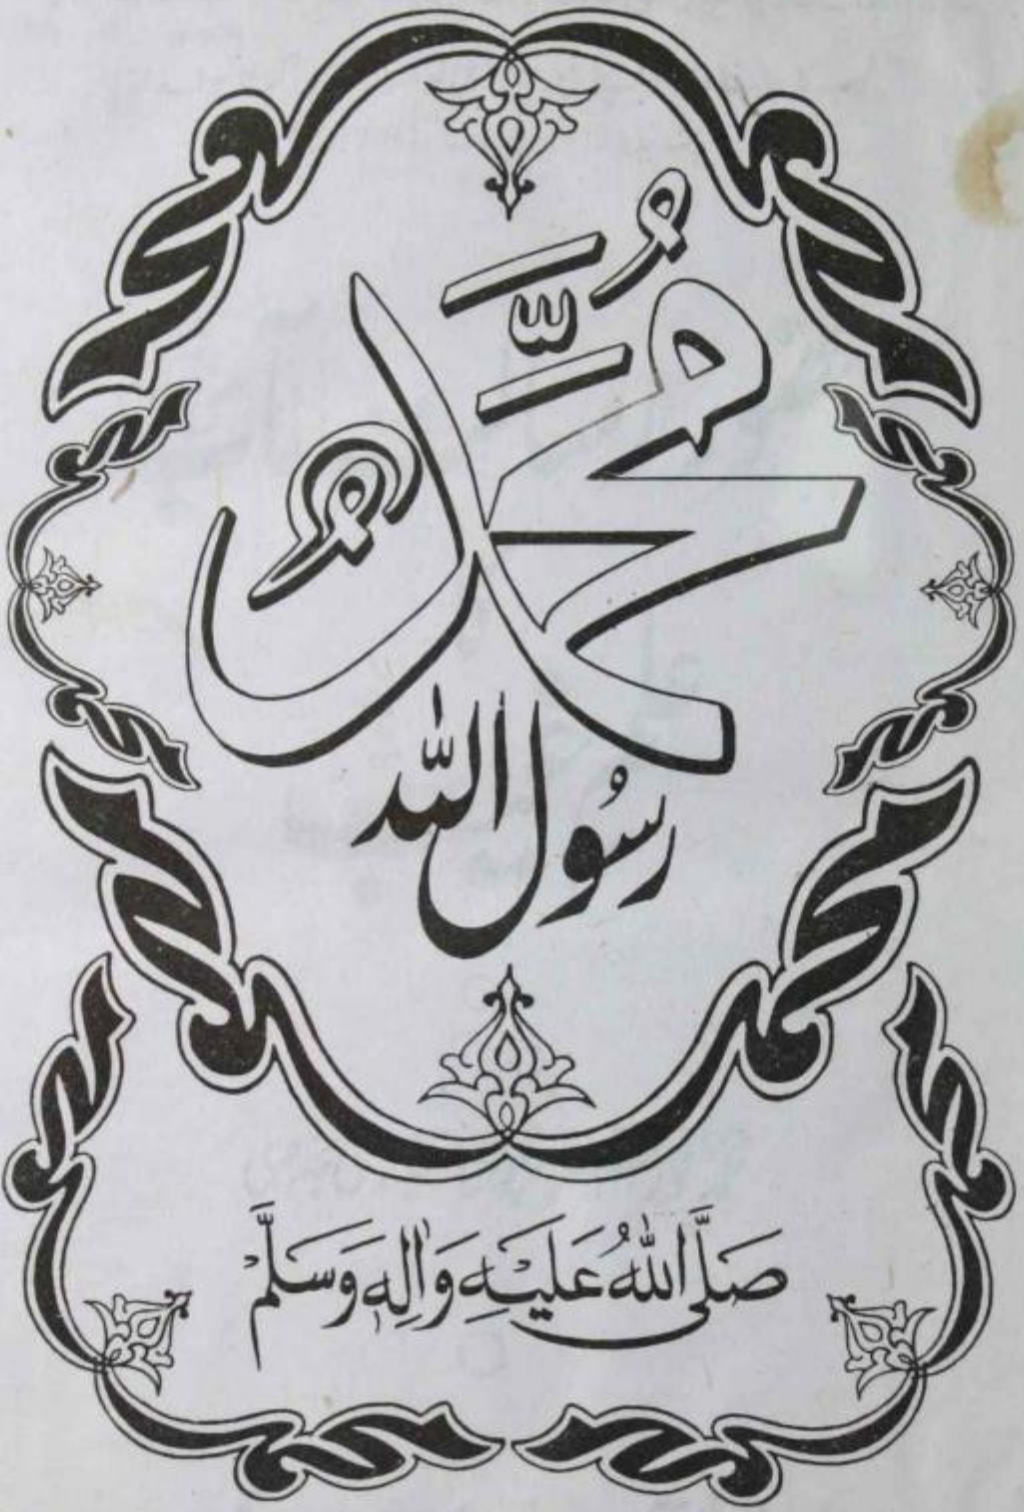 مُحَمَّدٌ
رسُول اللّٰه
صَلَّى اللّٰهُ عَلَيْهِ وَاٰلِهٖ وَسَلَّمْ